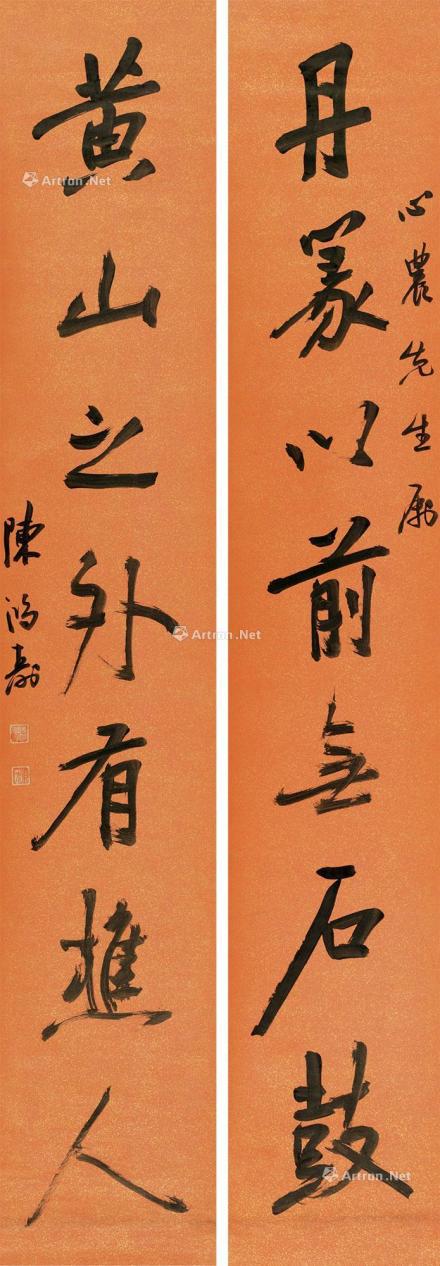 心農先生属
丹篆以前無石鼓
黄山之外有樵人
陳鴻壽
Artron.Net
Artron.Net
Artron.Net